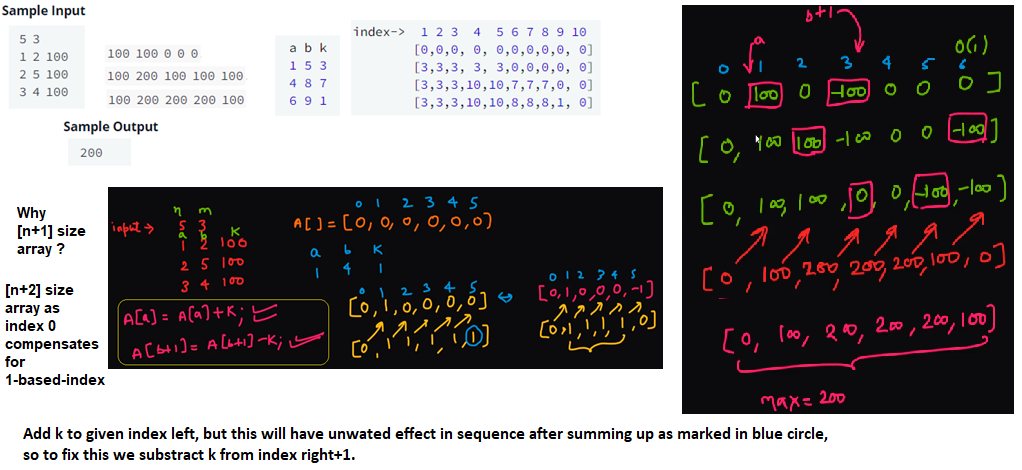 Sample Input
5 3
1 2 100
2 5 100
3 4 100
100 100 0 0 0
100 200 100 100 100
100 200 200 200 100
a b k
1 5 3
4 8 7
6 9 1
index-> 1 2 3 4 5 6 7 8 9 10
[0,0,0, 0, 0,0,0,0,0, 0]
[3,3,3, 3, 3,0,0,0,0, 0]
[3,3,3,10,10,7,7,7,0, 0]
[3,3,3,10,10,8,8,8,1, 0]
Sample Output
200
Why
[n+1] size
array ?
[n+2] size
array as
index 0
compensates
for
1-based-index
n m
input → 5 3
a b K
1 2 100
2 5 100
3 4 100
A[a] = A[a]+K;
A[b+1] = A[b+1]-K;
0 1 2 3 4 5
A[ ] = [0, 0, 0, 0, 0, 0]
a b K
1 4 1
0 1 2 3 4 5
[0, 1, 0, 0, 0, 0] ⇔
[0, 1, 1, 1, 1, 1]
0 1 2 3 4 5
[0, 1, 0, 0, 0, -1]
[0, 1, 1, 1, 1, 0]
b+1
a
O(1)
0 1 2 3 4 5 6
[ 0 100 0 -100 0 0 0 ]
[ 0, 100 100 -100 0 0 -100 ]
[ 0, 100, 100, 0, 0, -100, -100 ]
[ 0, 100, 200, 200, 200, 100, 0 ]
[ 0, 100, 200, 200, 200, 100 ]
max = 200
Add k to given index left, but this will have unwated effect in sequence after summing up as marked in blue circle,
so to fix this we substract k from index right+1.